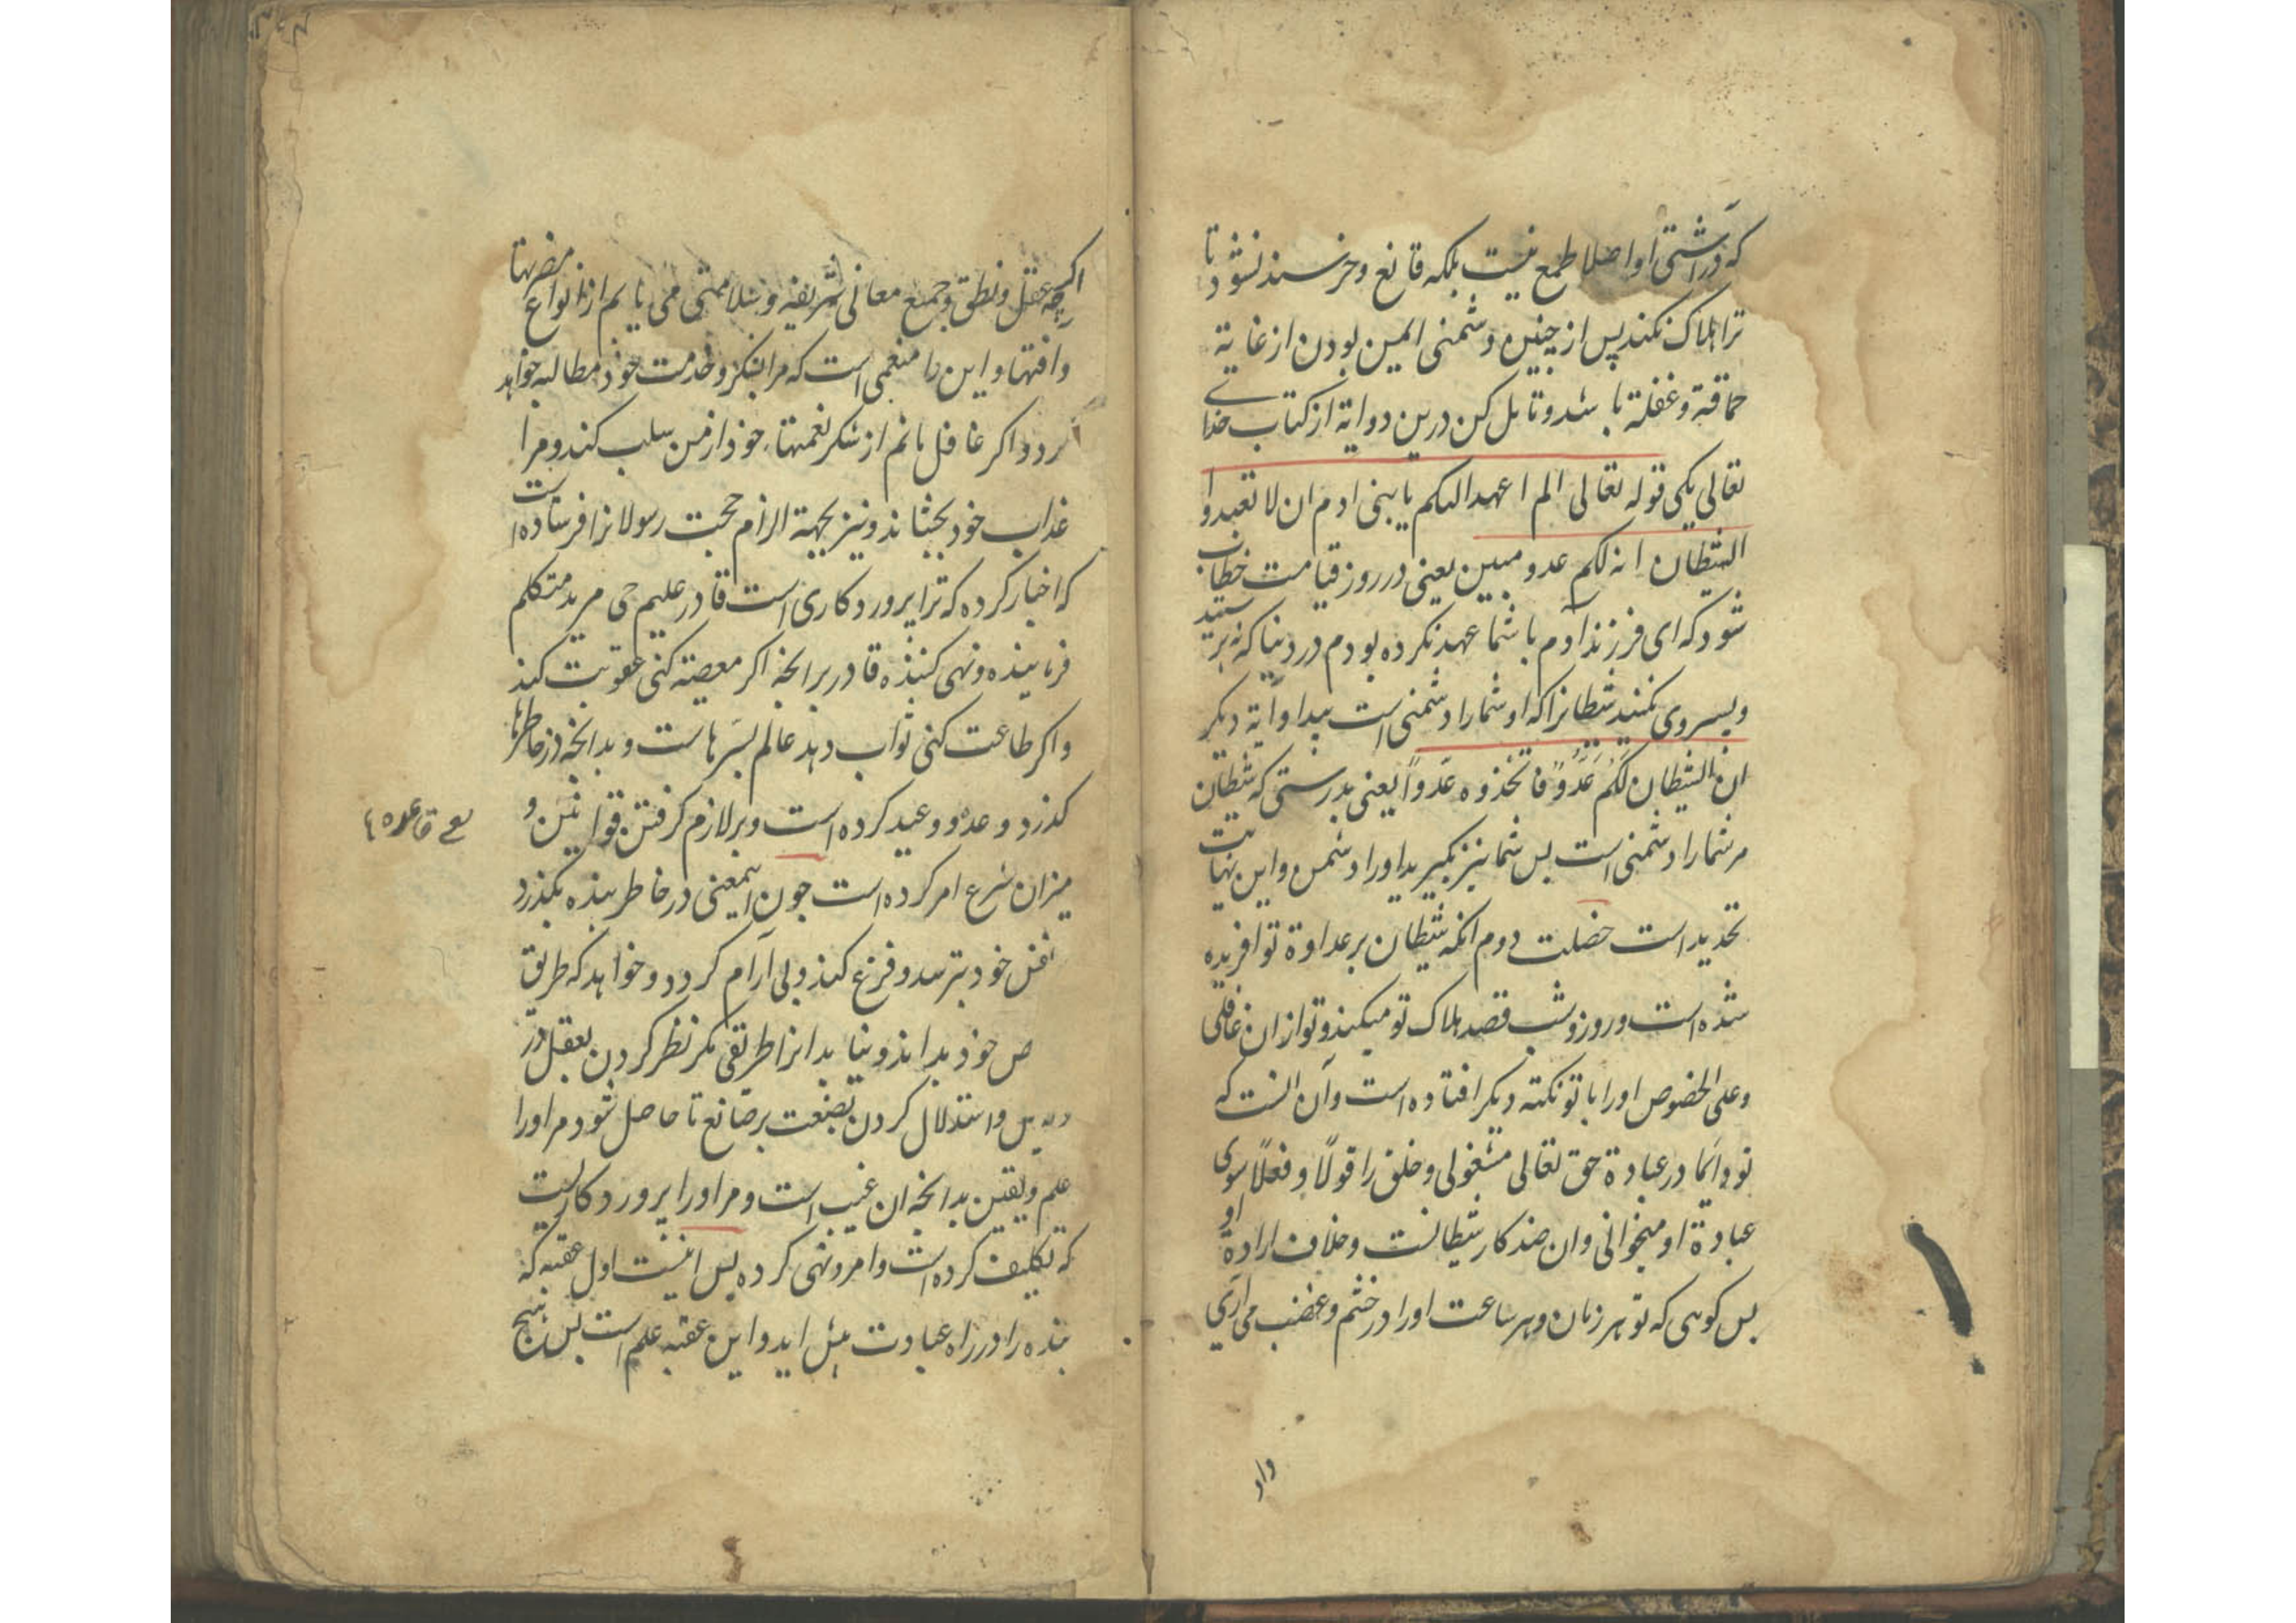 که در آشتی او اصلا طمع نیست بلکه قانع و خرسند نشود تا
ترا هلاک نکند پس از چنین دشمنی ایمن بودن از غایة
حماقة و غفلة باشد و تامل کن درین دو ایة از کتاب خدای
تعالی یکی قوله تعالی الم اعهد الیکم یا بنی ادم ان لا تعبدوا
الشیطان انه لکم عدو مبین یعنی در روز قیامت خطاب
شود که ای فرزند آدم با شما عهد نکرده بودم در دنیا که نپرستید
و پیروی نکنید شیطانرا که او شما را دشمنی است پیدا و آیة دیکر
ان الشیطان لکم عَدُوٌ فاتخذوه عَدواً یعنی بدرستی که شیطان
مر شما را دشمنی است پس شما نیز بکیرید او را دشمن و این نهایت
تحدید است خصلت دوم انکه شیطان بر عداوة تو افریده
شده است و روز و شب قصد هلاک تو میکند و تو ازان غافلی
و علی الخصوص او را با تو نکته دیکر افتاده است و آن انست که
تو دائما در عبادة حق تعالی مشغولی و خلق را قولاً و فعلاً سوی
عبادة او میخوانی و ان ضد کار شیطانست و خلاف ارادة او
پس کوهی که تو هر زمان و هر ساعت او را در خشم و غضب می آری
واد
عقل و نطق و جمیع معانی شریفه و سلامتی می یابم از انواع مضرتها
و افتها و این را منعمی است که مرا بشکر و خدمت خود مطالبه خواهد
کردد اکر غافل مانم از شکر نعمتها خود از من سلب کند و مرا
عذاب خود بچشاند و نیز بجهة الزام حجت رسولانرا فرستاده است
که اخبار کرده که ترا پروردکاری است قادر علیم حی مرید متکلم
فرماینده و نهی کننده قادر برانچه اکر معصیة کنی عقوبت کند
و اکر طاعت کنی ثواب دهد عالم بسَرهاست و بدانچه در خاطرها
کذرد و وعده و وعید کرده است و بر لازم کرفتن قوانین و
میزان شرع امر کرده است جون اینمعنی در خاطر بنده بکذرد
نفس خود بترسد و فزع کند و بی آرام کردد و خواهد که طریق
ص خود بداند و نیابد انرا طریقی مکر نظر کردن بعقل در
و استدلال کردن بصنعت بر صانع تا حاصل شود مر او را
علم و یقین بدانچه ان غیب است و مر او را پروردکاریست
که تکلیف کرده است و امر و نهی کرده پس اینست اول عقبه که
بنده را در راه عبادت پیش اید و این عقبه علم است پس
قاعده